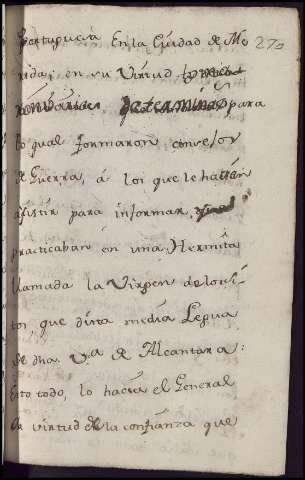 Portuguesa En la Ciudad de Me 270
rida; en su Virtud
para
lo qual formaron consejos
de Guerra, á los que le hacían
asistir para informar,
practicaban en una Hermita
llamada la Virgen de los Hi
tos, que dista media Legua
de dha V.a de Alcantara:
Esto todo, lo hacia el General
en virtud de la confianza que